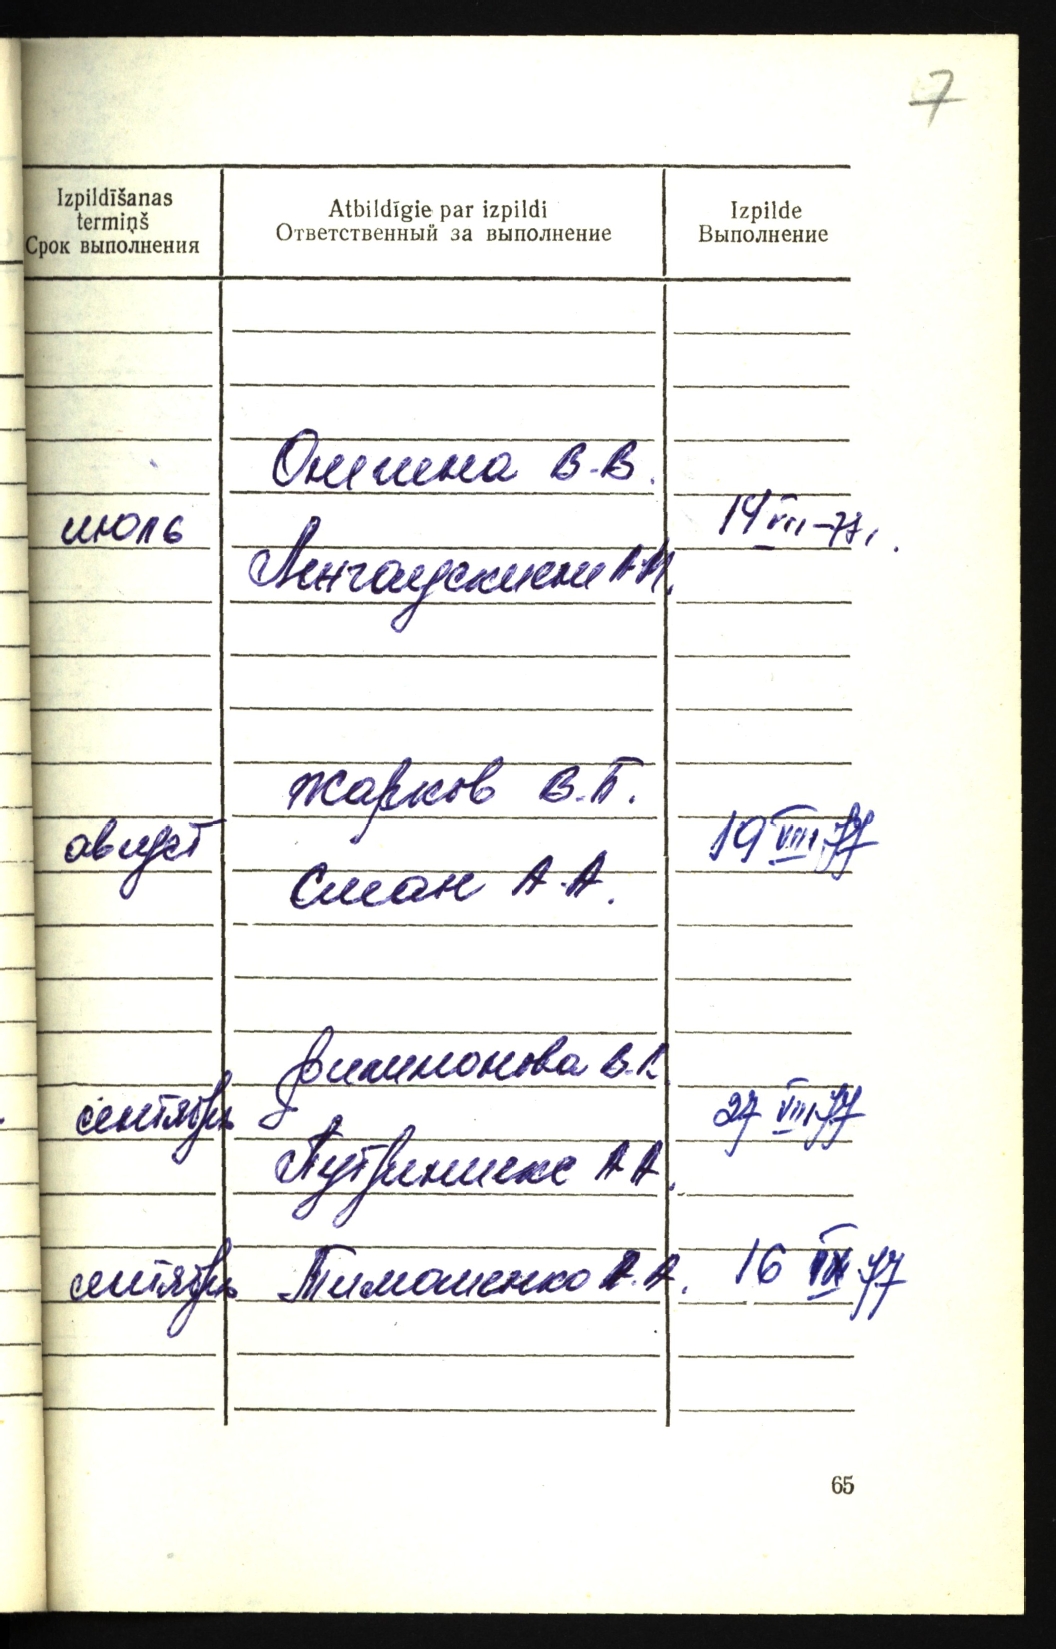 7
Izpildīšanas
termiņš
Срок выполнения
Atbildīgie par izpildi
Ответственный за выполнение
Izpilde
Выполнение
В.В.
июль
14 VII-77.
А.И.
Жарков В.П.
август
19 VIII 77
Сман А.А.
Филимонова В.
сентябрь
27 VIII 77
А.А.
сентябрь Тимошенко А.А. 16 IX 77
65